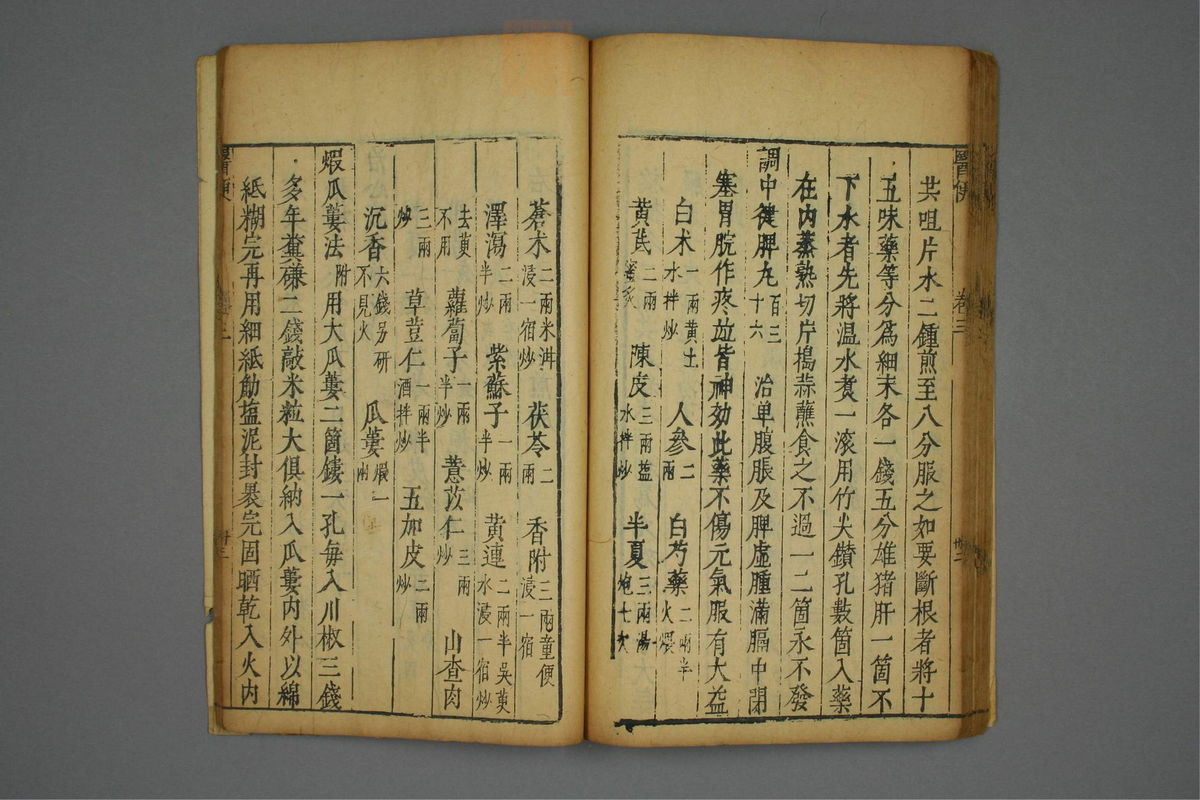 醫便
卷三
廿二
共咀片水二鍾煎至八分服之如要斷根者將十
五味藥等分為細末各一錢五分雄猪肝一箇不
下水者先將溫水煮一滚用竹尖鑚孔數箇入藥
在內蒸熟切片搗蒜蘸食之不過一二箇永不發
調中健脾丸百三十六 治单腹脹及脾虛腫滿膈中閉
塞胃脘作疼並皆神効此藥不傷元氣服有大益
白朮一兩黄土水拌炒 人參二兩 白芍藥二兩半火煨
黄茋二兩蜜炙 陳皮三兩盐水拌炒 半夏三兩湯炮七次
蒼朮二兩米泔浸一宿炒 茯苓二兩 香附三兩童便浸一宿
澤瀉二兩半炒 紫蘇子一兩半炒 黄連二兩半吳萸水浸一宿炒
去萸不用 蘿蔔子一兩半炒 薏苡仁三兩炒 山查肉
三兩炒 草荳仁一兩半酒拌炒 五加皮二兩炒
沉香六錢另研不見火 瓜蔞煅一兩
煅瓜蔞法附 用大瓜蔞二箇鏤一孔每入川椒三錢
多年糞磏二錢敲米粒大俱納入瓜蔞內外以綿
紙糊完再用細紙觔盐泥封裹完固晒乾入火內
醫便